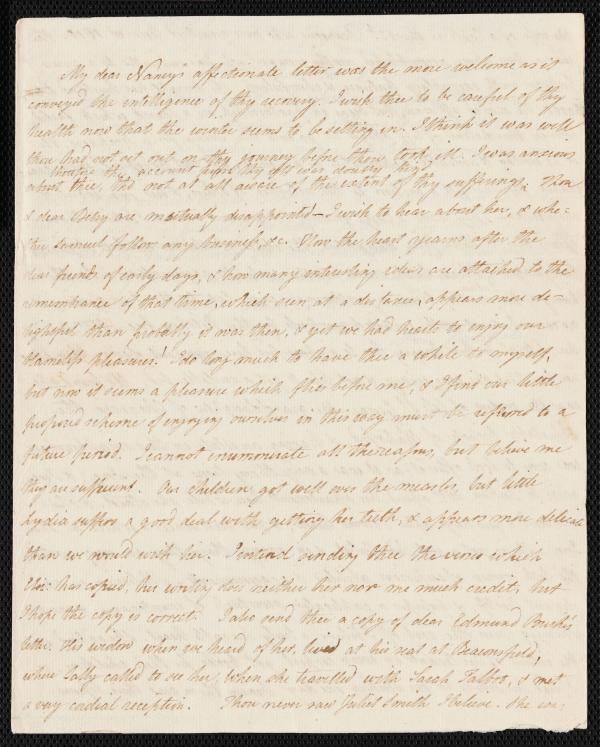 My dear Nancy's affectionate letter was the more welcome as it
conveyed the intelligence of thy recovery. I wish thee to be careful of thy
health now that the winter seems to be setting in. I think it was well
thou had not set out on thy journey before thou took ill. I was anxious
about thee, tho' the account from thy was not at all aware of the extent of thy sufferings. Thou
& dear Betsy are mutually disappointed — I wish to hear about her, & whe=
ther Samuel follows any business, &c. How the heart yearns after the
dear friends of early days, & how many interesting ideas are attached to the
remembrance of that time, which even at a distance, appears more de=
lightful than probably it was then, & yet we had hearts to enjoy our
blameless pleasures! I do long much to have thee a while to myself,
but now it seems a pleasure which flies before me, & I find our little
proposed scheme of enjoying ourselves in this way must be referred to a
future period. I cannot enumerate all the reasons, but believe me
they are sufficient. Our children got well over the measles, but little
Lydia suffers a good deal with getting her teeth, & appears more delicate
than we would wish her. I intend sending thee the verses which
Eliz: has copied, her writing does neither her nor me much credit, but
I hope the copy is correct. I also send thee a copy of dear Edmund Burke's
letter. His widow when we heard of her, lived at his seat at Beaconsfield,
where Sally called to see her, when she travelled with Sarah Talbot, & met
a very cordial reception. Thou never saw Juliet Smith I believe. She was